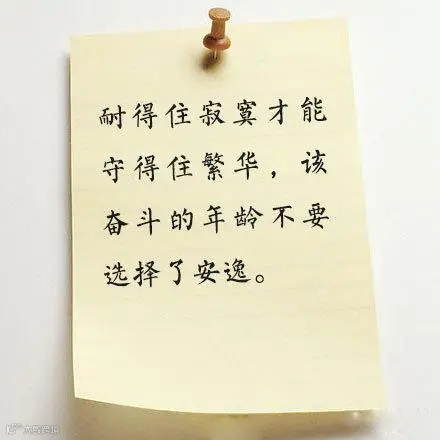 耐得住寂寞才能
守得住繁华，该
奋斗的年龄不要
选择了安逸。